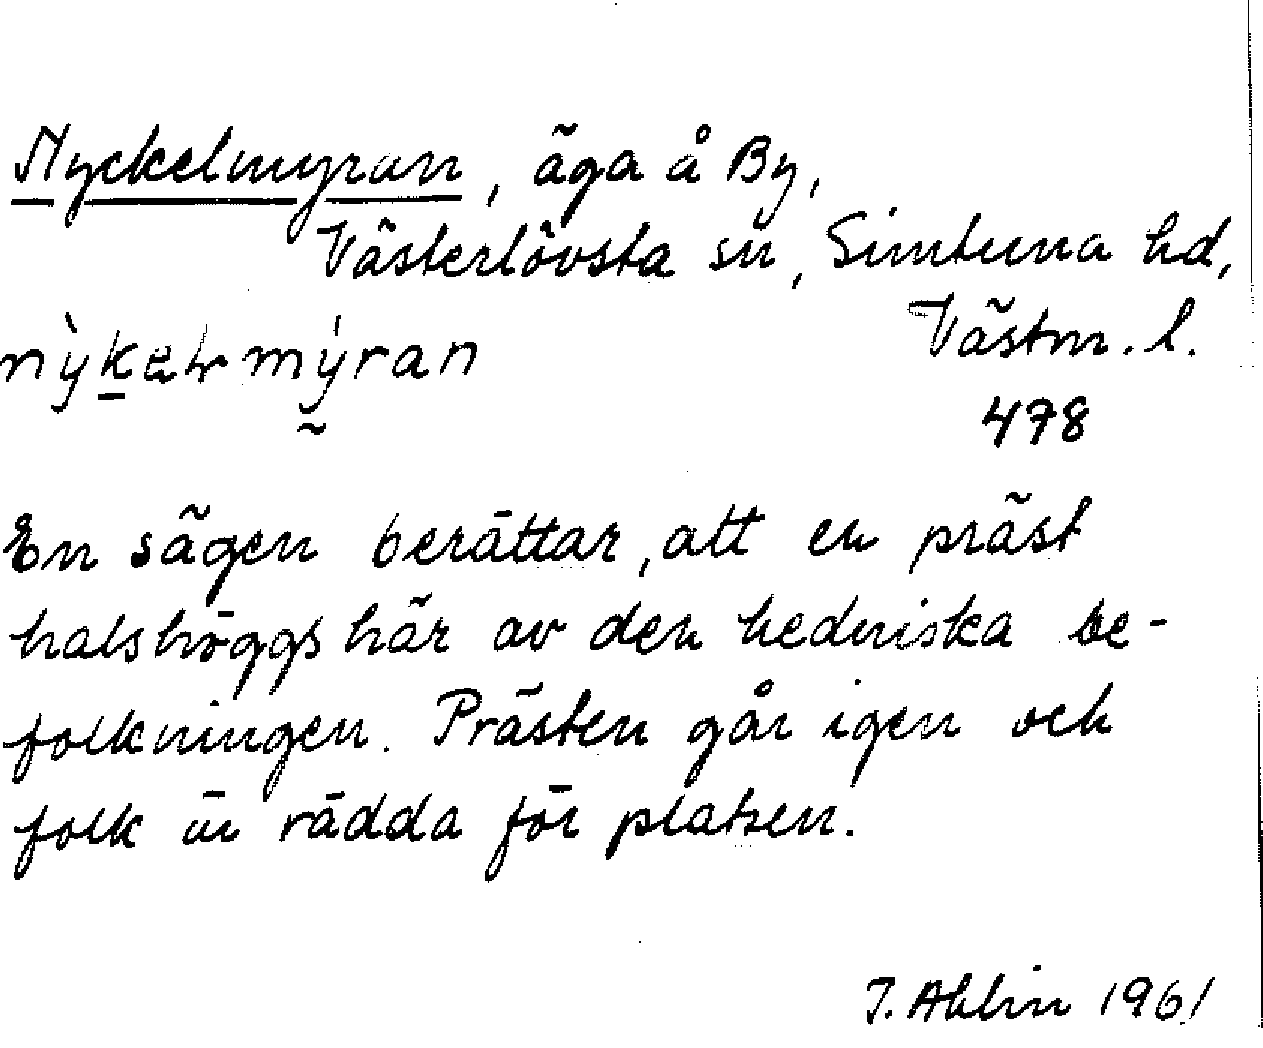 Nyckelmyran, äga å By,
Västerlövsta sn, Simtuna hd,
Västm. l.
478
En sägen berättar, att en präst
halshöggs här av den hedniska be-
folkningen. Prästen går igen och
folk är rädda för platsen.
J. Ahlin 1961